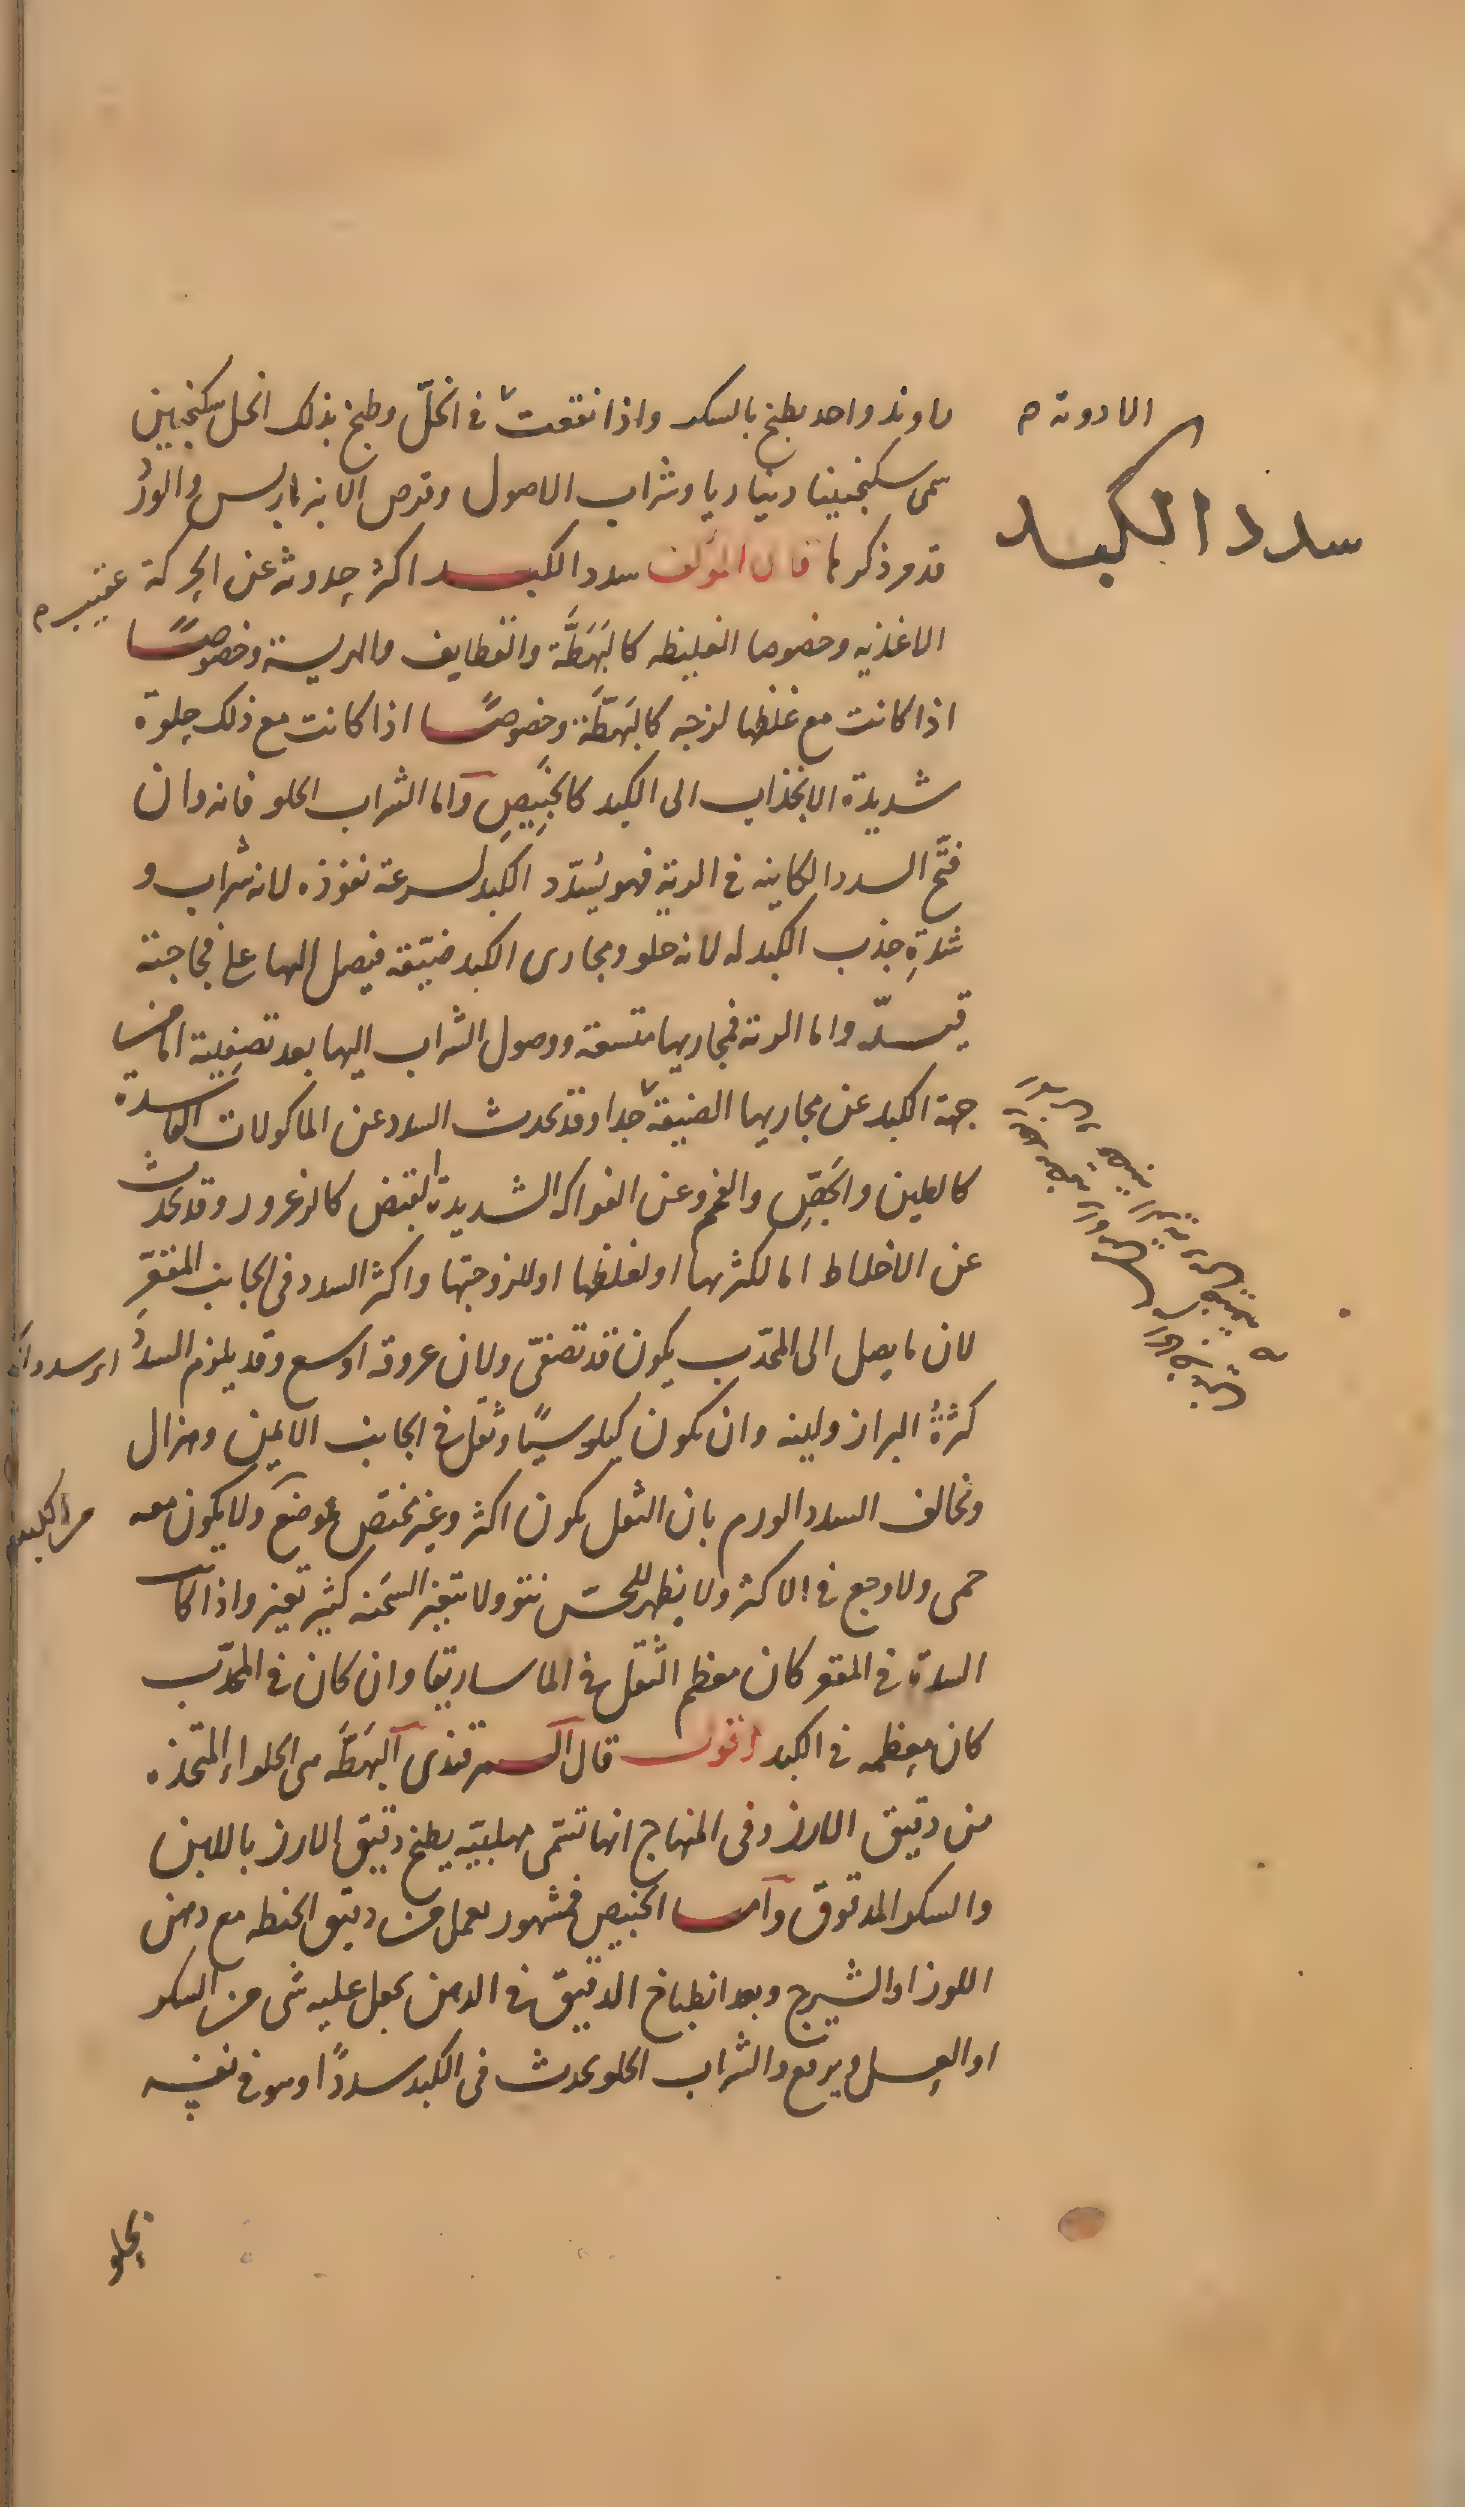 الادوية م
سدد الكبد
راوند واحد يطبخ بالسكر واذا نقعت في الخلّ وطبخ بذلك الخل سكنجبين
سمى سكنجبينا ديناريا وشراب الاصول وقرص الانبرباريس والورد
قد مر ذكرها قال المؤلف سدد الكبد اكثر حدوثه عن الحركة عقيب م
الاغذيه وخصوصا الغليظه كالبَهَطَّة والقطايف والهريسة وخصوصًا
اذا كانت مع غلظها لزجه كالبَهَطَّة وخصوصًا اذا كانت مع ذلك حلوة
شديدة الانجذاب الى الكبد كالخَبِيصِ واما الشراب الحلو فانه وان
فتّح السدد الكاينه في الرية فهو يُسَدّد الكبد لسرعة نفوذه لانه شراب و
شدةِ جذب الكبد له لانه حلو ومجارى الكبد ضيّقة فيصل اليها على فجاجته
فيسدّ واما الرية فمجاريها متسعة ووصول الشراب اليها بعد تصفيية اما من
جهة الكبد عن مجاريها الضيقة جدا وقد تحدث السدد عن الماكولات الفاسدة
كالطين والجَصِّ والفحم وعن الفواكه الشديدة القبض كالزعرور وقد تحدث
عن الاخلاط اما لكثرتها او لغلظها او للزوجتها واكثر السدد في الجانب المقعّرِ
لان ما يصل الى المحدّب يكون قد تصفّى ولان عروقه اوسع وقد يلزم السددُ اى سدد
كثرةُ البراز ولينه وان يكون كيلوسيًا وثقل في الجانب الايمن وهزال
وتخالف السدد الورم بان الثقل يكون اكثر وغير مختص بموضع ولا يكون معه من الكبد
حمى ولا وجع في الاكثر ولا يظهر للحسّ نتو ولا تتغير السَحنه كثير تغير واذا كانت
السدة في المقعر كان معظم الثقل في الماساريقا وان كان في المحدّب
كان معظمه في الكبد اقول قال السمرقندى البَهَطَّه هى الحلواء المتخذه
من دقيق الارز وفى المنهاج انها تسمّى مهلبيّه يطبخ دقيق الارز باللبن
والسكر المدقوق وامّا الخبيص فمشهور يعمل من دقيق الحنطه مع دهن
اللوز او الشيرج وبعد انطباخ الدقيق في الدهن يجعل عليه شى من السكر
او العسل ويرفع والشراب الحلو يحدث فى الكبد سددًا وهو في نفسه
يجلو